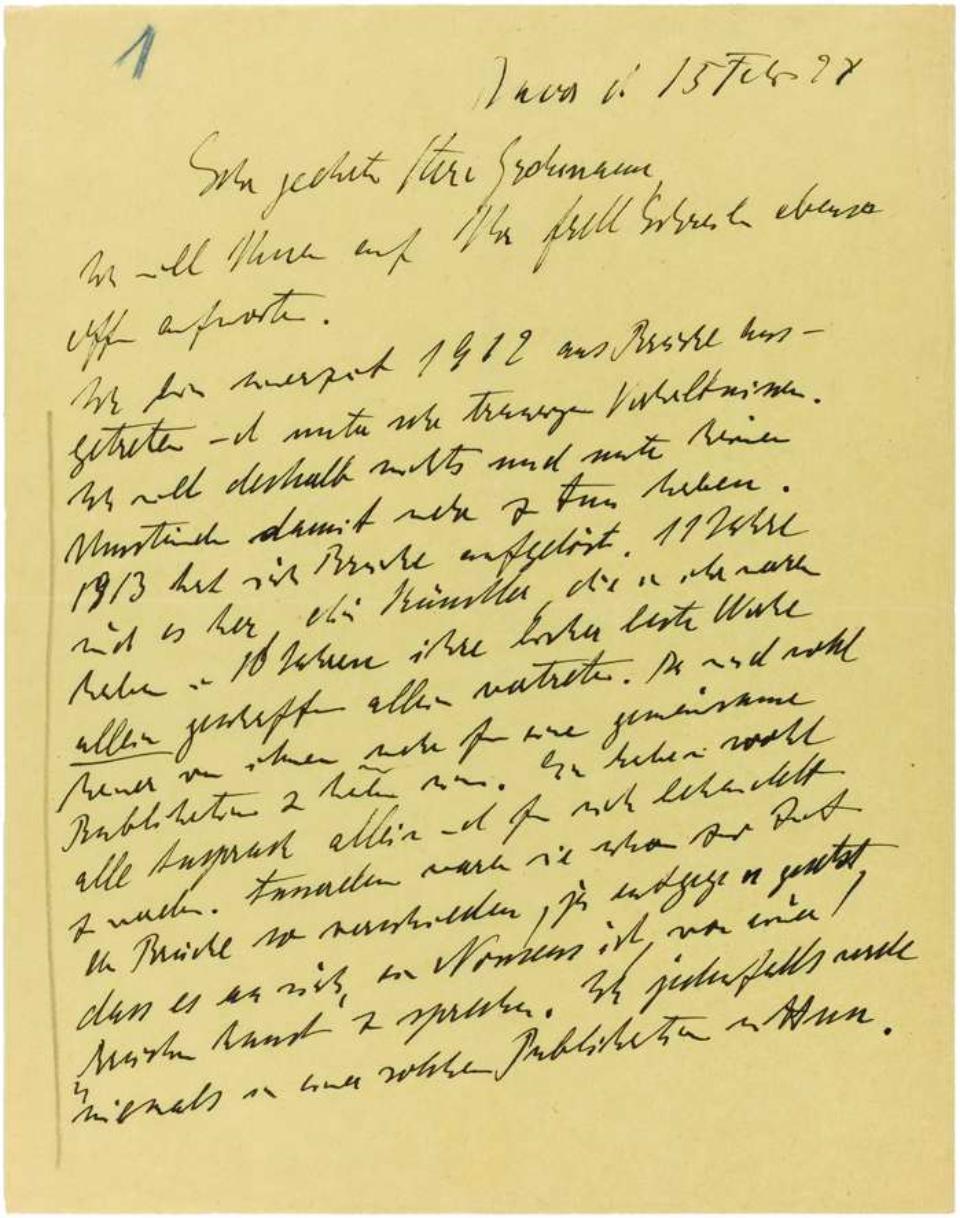 1
Davos d. 15 Feb 28
Sehr geehrter Herr
Ich will Ihnen auf Ihr Schreiben ebenso
offen antworten.
Ich bin seinerzeit 1912 aus Brücke aus-
getreten und unter sehr traurigen Verhältnissen.
Ich will deshalb nichts und unter keinen
Umständen damit mehr z tun haben.
1913 hat sich Brücke aufgelöst. 11 Jahre
sind es her, die Künstler, die in ihr waren
haben in 10 Jahren ihre bisher beste Werke
allein geschaffen allein vertreten. Da wird wohl
keiner von ihnen mehr für eine gemeinsame
Publikation z haben sein. Sie haben wohl
alle Anspruch allein und für sich behandelt
z werden. Ausserdem waren sie schon zur Zeit
der Brücke so verschieden, ja entgegen gesetzt,
dass es an sich, ein Nonsens ist, von einer
Brücken Kunst z sprechen. Ich jedenfalls werde
niemals in einer solchen Publikation